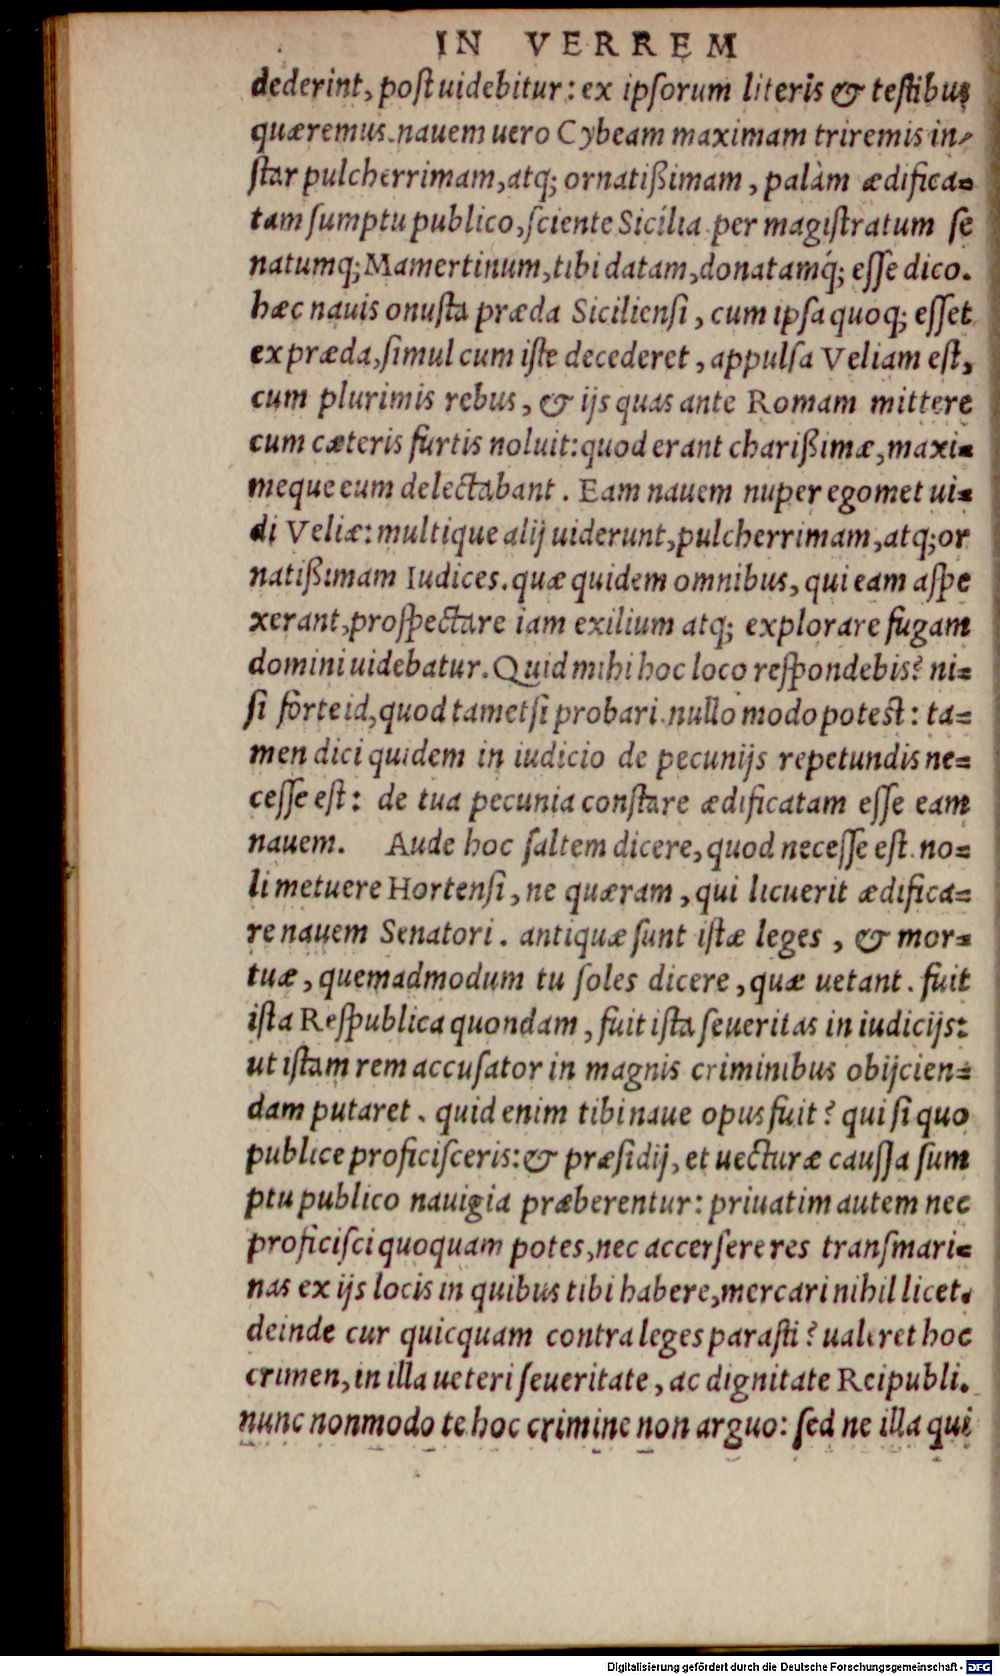 IN VERREM
dederint, post uidebitur: ex ipsorum literis & testibus
quæremus. nauem uero Cybeam maximam triremis in-
star pulcherrimam, atq; ornatißimam, palàm ædifica-
tam sumptu publico, sciente Sicilia per magistratum se
natumq; Mamertinum, tibi datam, donatamq́; esse dico.
hæc nauis onusta præda Siciliensi, cum ipsa quoq; esset
ex præda, simul cum iste decederet, appulsa Veliam est,
cum plurimis rebus, & ijs quas ante Romam mittere
cum cæteris furtis noluit: quod erant charißimæ, maxi-
meque eum delectabant. Eam nauem nuper egomet ui-
di Veliæ: multique alij uiderunt, pulcherrimam, atq; or
natißimam Iudices. quæ quidem omnibus, qui eam aspe
xerant, prospectare iam exilium atq; explorare fugam
domini uidebatur. Quid mihi hoc loco respondebis? ni-
si forte id, quod tametsi probari nullo modo potest: ta-
men dici quidem in iudicio de pecunijs repetundis ne-
cesse est: de tua pecunia constare ædificatam esse eam
nauem. Aude hoc saltem dicere, quod necesse est. no-
li metuere Hortensi, ne quæram, qui licuerit ædifica-
re nauem Senatori. antiquæ sunt istæ leges, & mor-
tuæ, quemadmodum tu soles dicere, quæ uetant. fuit
ista Respublica quondam, fuit ista seueritas in iudicijs:
ut istam rem accusator in magnis criminibus obijcien-
dam putaret. quid enim tibi naue opus fuit? qui si quo
publice proficisceris: & præsidij, et uecturæ caussa sum
ptu publico nauigia præberentur: priuatim autem nec
proficisci quoquam potes, nec accersere res transmari-
nas ex ijs locis in quibus tibi habere, mercari nihil licet.
deinde cur quicquam contra leges parasti? ualeret hoc
crimen, in illa ueteri seueritate, ac dignitate Reipubli.
nunc nonmodo te hoc crimine non arguo: sed ne illa qui
Digitalisierung gefördert durch die Deutsche Forschungsgemeinschaft - DFG